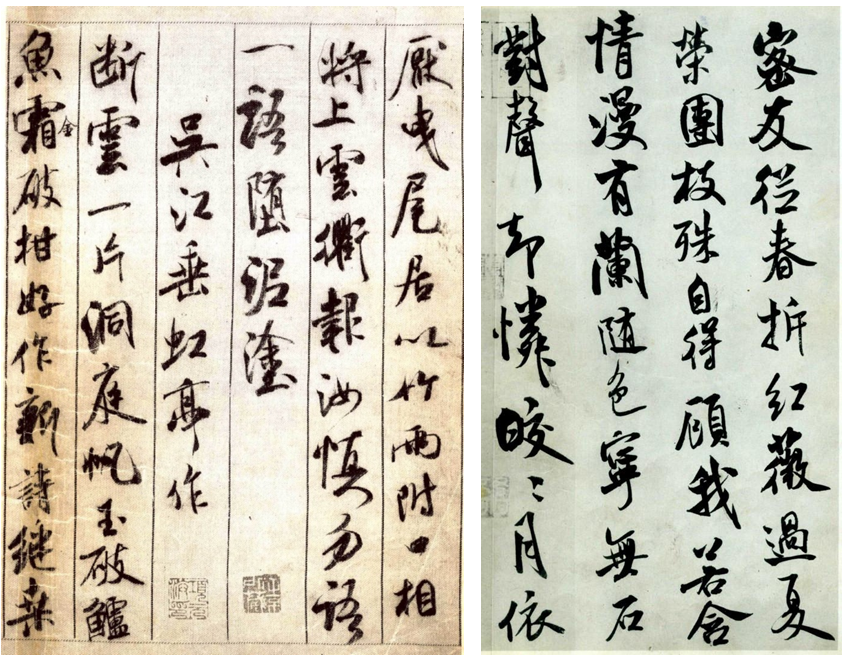 厭曳尾居以竹兩附口相
將上雲衢報汝慎勿語
一語墮泥塗
吴江垂虹亭作
断雲一片洞庭帆玉破鱸
魚霜金破柑好作新詩继桒
密友從春拆紅薇過夏
榮團枝殊自得顧我若含
情漫有蘭随色寧無石
對聲却憐皎〻月依